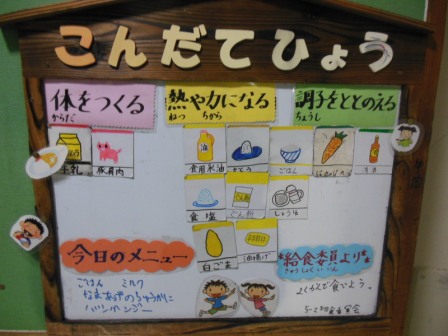 こんだてひょう
体をつくる
からだ
熱や力になる
ねつ ちから
調子をととのえる
ちょうし
牛乳
豚肉
食用米油
さとう
ごはん
にんじん
食塩
しょうゆ
白ごま
油揚げ
今日のメニュー
ごはん ミルク
なまあげのちゅうかに
バンバンジー
給食委員より
きゅうしょくいいん
よくかんで食べてね。